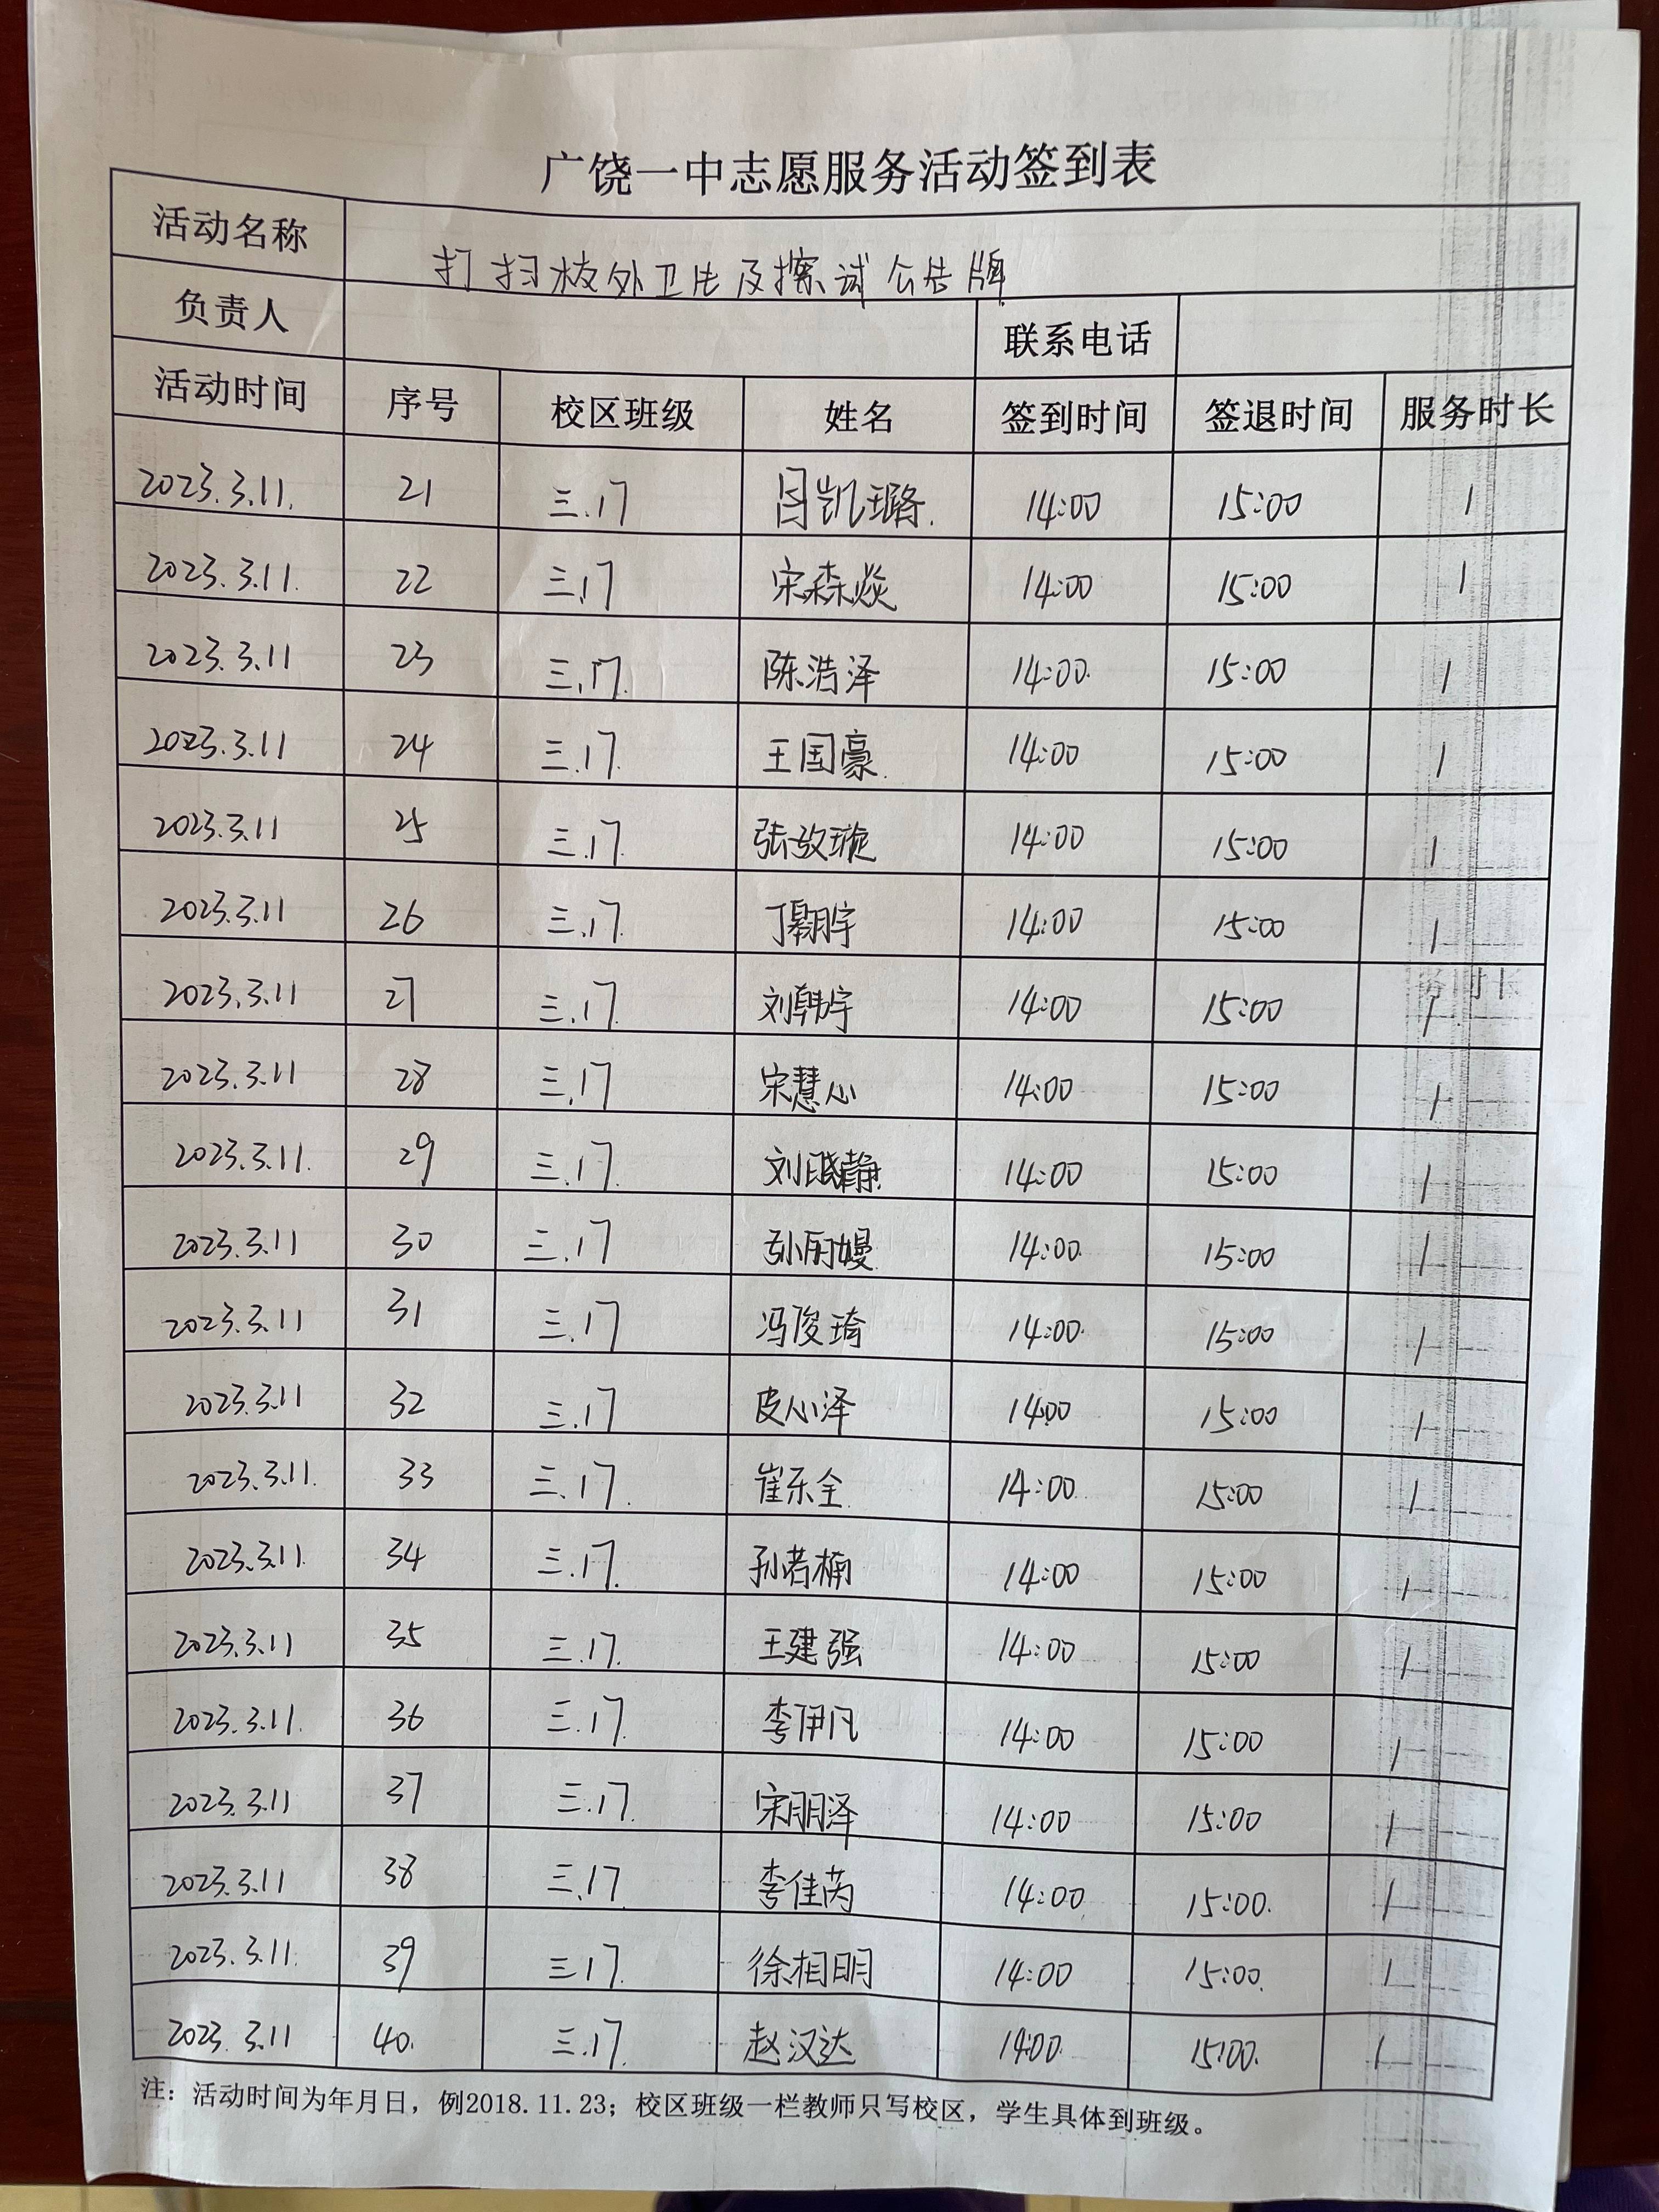 广饶一中志愿服务活动签到表
活动名称 打扫校外卫生及擦试公告牌
负责人 联系电话
活动时间 序号 校区班级 姓名 签到时间 签退时间 服务时长
2023.3.11. 21 三.17 吕凯璐. 14:00 15:00 1
2023.3.11. 22 三.17 宋森焱 14:00 15:00 1
2023.3.11 23 三.17. 陈浩泽 14:00. 15:00 1
2023.3.11 24 三.17. 王国豪. 14:00 15:00 1
2023.3.11 25 三.17. 张 14:00 15:00 1
2023.3.11 26 三.17. 丁 14:00 15:00 1
2023.3.11 27 三.17. 刘韩宇 14:00 15:00 1
2023.3.11 28 三.17 宋慧心 14:00 15:00 1
2023.3.11. 29 三.17. 刘晓静. 14:00 15:00 1
2023.3.11 30 三.17 孙雨嫚. 14:00. 15:00 1
2023.3.11 31 三.17. 冯俊琦 14:00. 15:00 1
2023.3.11 32 三.17 皮心泽 1400 15:00 1
2023.3.11. 33 三.17. 崔乐全. 14:00. 15:00 1
2023.3.11. 34 三.17. 孙若楠 14:00 15:00 1
2023.3.11 35 三.17. 王建强 14:00 15:00 1
2023.3.11. 36 三.17. 李伊凡 14:00 15:00 1
2023.3.11 37 三.17. 宋明泽 14:00 15:00 1
2023.3.11 38 三.17 李佳芮 14:00 15:00. 1
2023.3.11. 39 三17. 徐相明 14:00 15:00. 1
2023.3.11 40. 三.17. 赵汉达 14:00. 15:00. 1
注：活动时间为年月日，例2018.11.23；校区班级一栏教师只写校区，学生具体到班级。